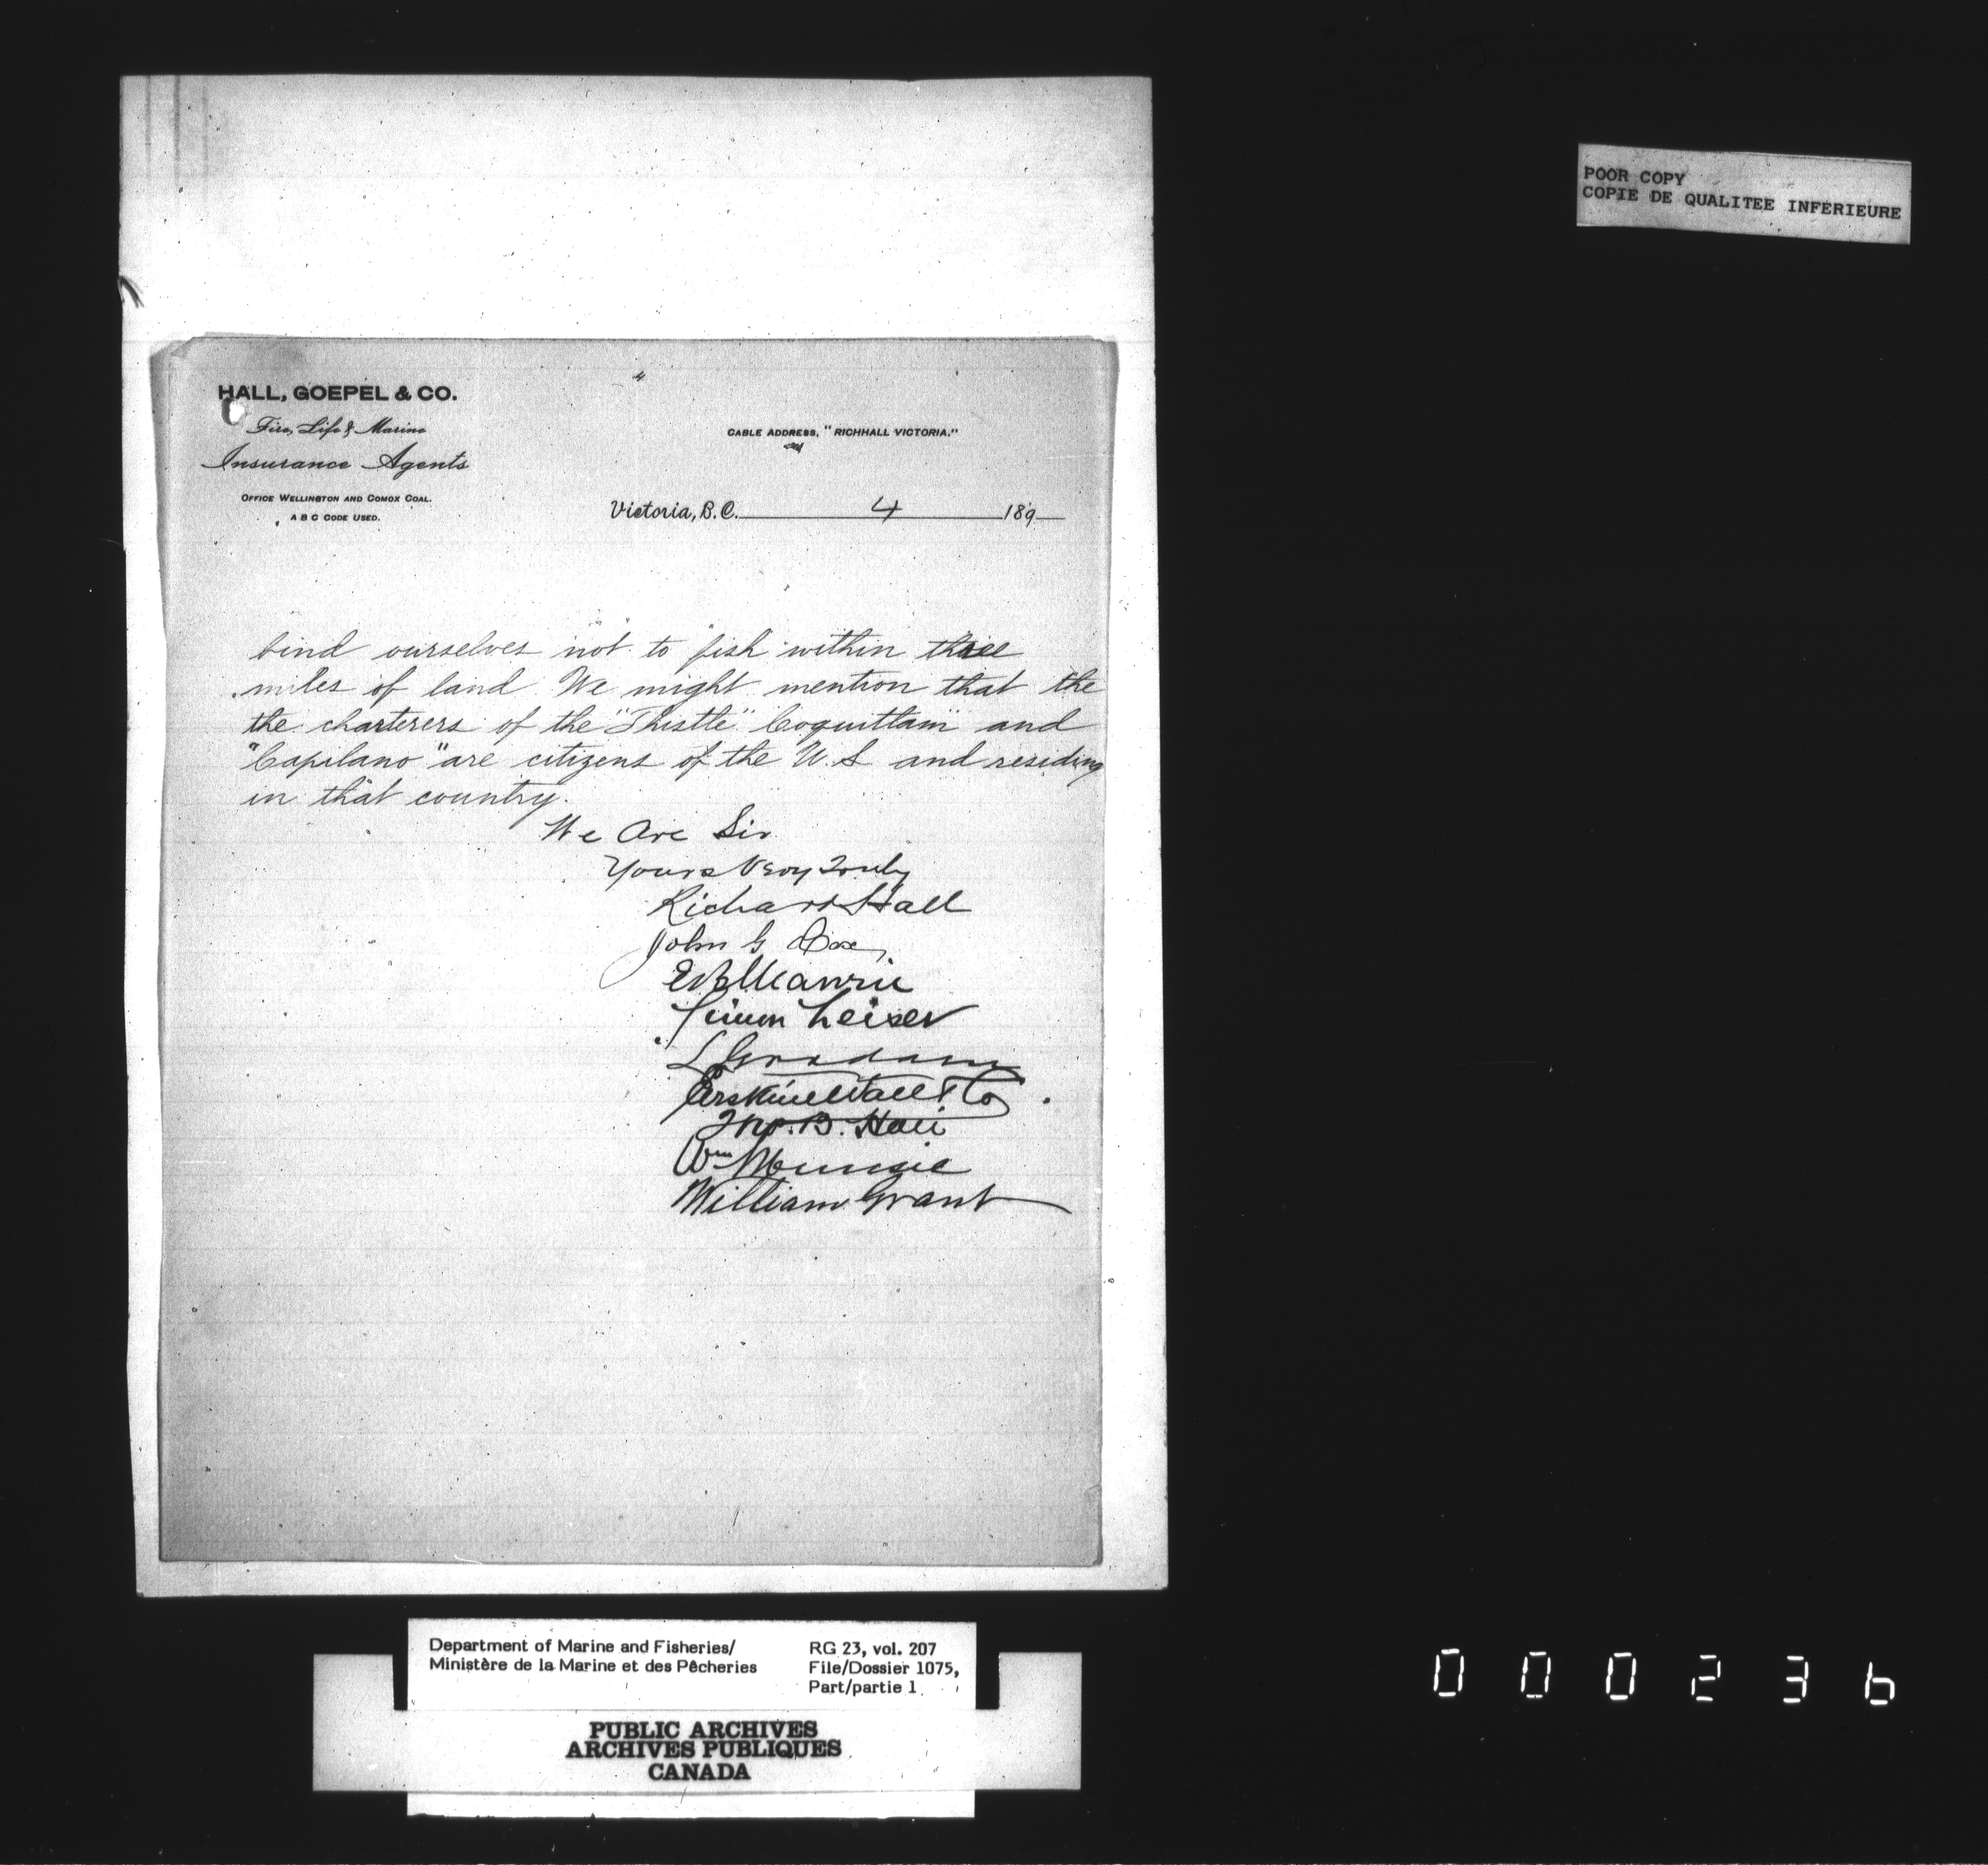 POOR COPY
COPIE DE QUALITEE INFERIEURE
HALL, GOEPEL & CO.
Fire, Life & Marine
Insurance Agents
OFFICE WELLINGTON AND COMOX COAL.
A B C CODE USED.
CABLE ADDRESS, "RICHHALL VICTORIA."
Victoria, B.C. 4 189
bind ourselves not to fish within three
miles of land. We might mention that the
the charterers of the "Thistle" Coquitlam" and
"Capilano" are citizens of the U.S and residing
in that country.
We Are Sir
Yours Very Truly
Richard Hall
John G Cox
Simon Leiser
Erskine Wall & Co
Wm Munsie
William Grant
Department of Marine and Fisheries/
Ministère de la Marine et des Pêcheries
RG 23, vol. 207
File/Dossier 1075,
Part/partie 1
PUBLIC ARCHIVES
ARCHIVES PUBLIQUES
CANADA
000236